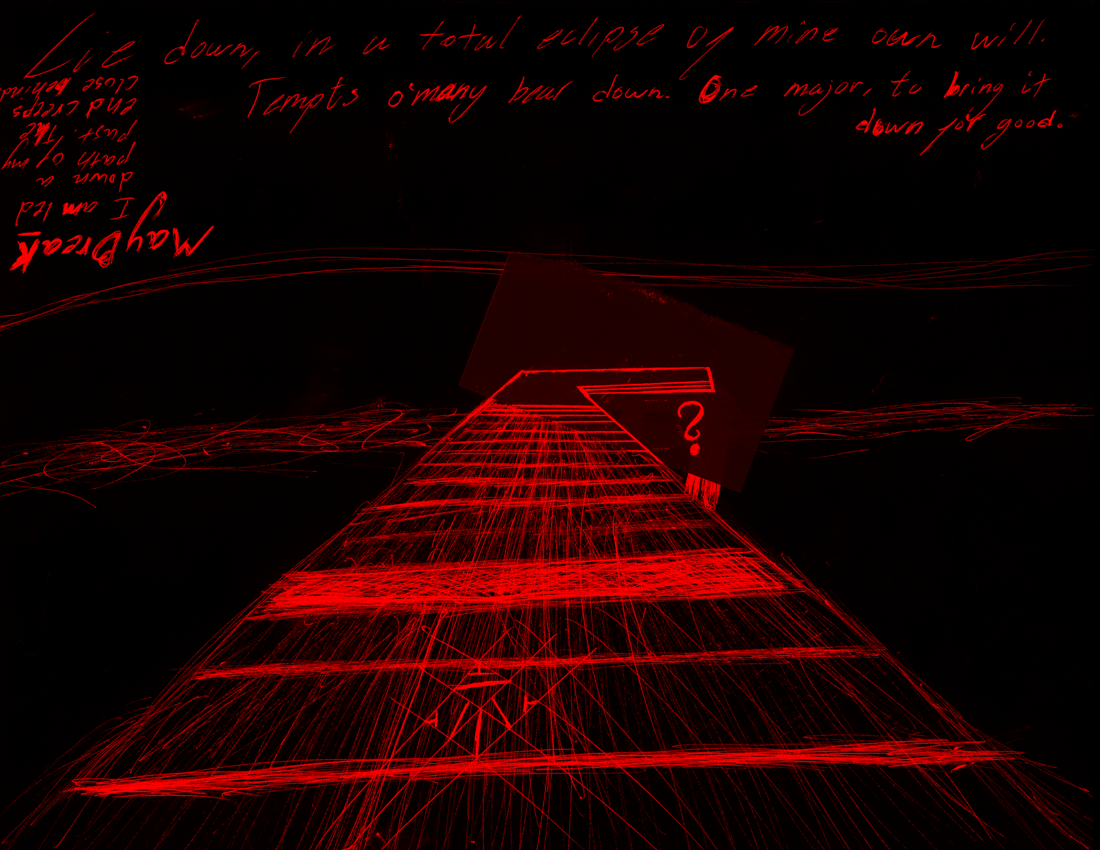 Lie down, in a total eclipse of mine own will.
Tempts o'many bear down. One major, to bring it
down for good.
MayBreak
I am led
down a
path of my
past. The
end creeps
close behind
?